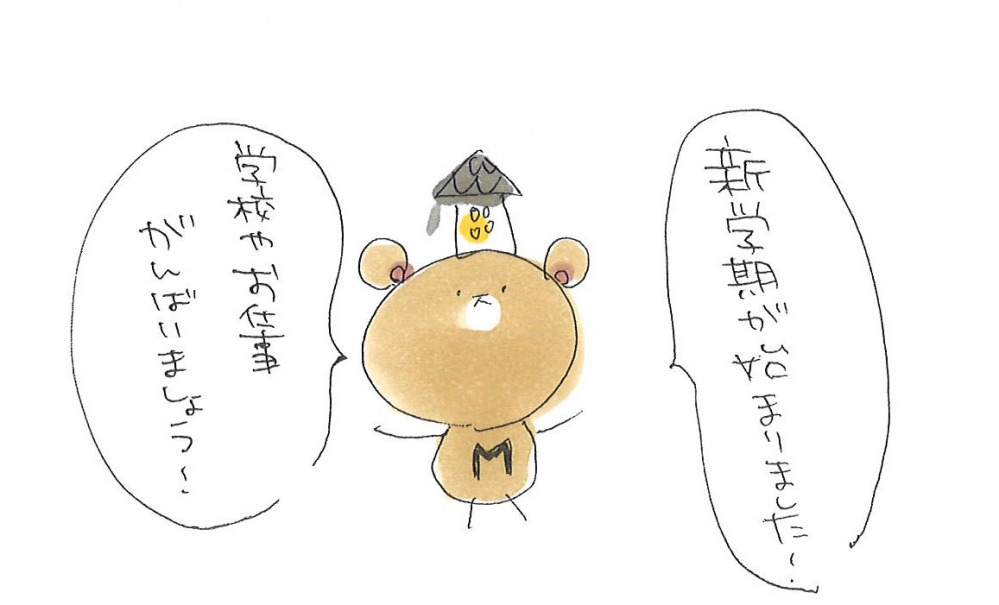 新学期が始まりました〜
学校やお仕事
がんばいましょう〜
M